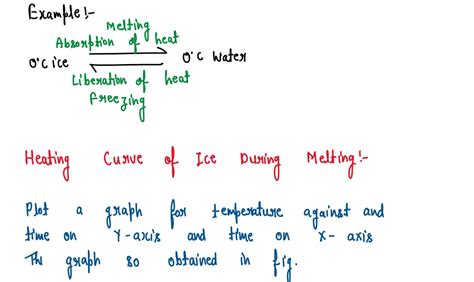 Example:-
Melting
Absorption of heat
0°C ice
0°C Water
Liberation of heat
Freezing
Heating Curve of Ice During Melting:-
Plot a graph for temperature against and
time on Y-axis and time on X-axis
The graph so obtained in fig.